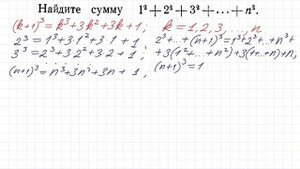 Найдите сумму 1³+2³+3³+...+n³.
(k+1)³=k³+3k²+3k+1; k=1,2,3,...,n
2³=1³+3·1²+3·1+1
3³=2³+3·2²+3·2+1
(n+1)³=n³+3n²+3n+1;
2³+...+(n+1)³=1³+2³+...+n³+
+3(1²+...+n²)+3(1+...+n)+n,
(n+1)³=1